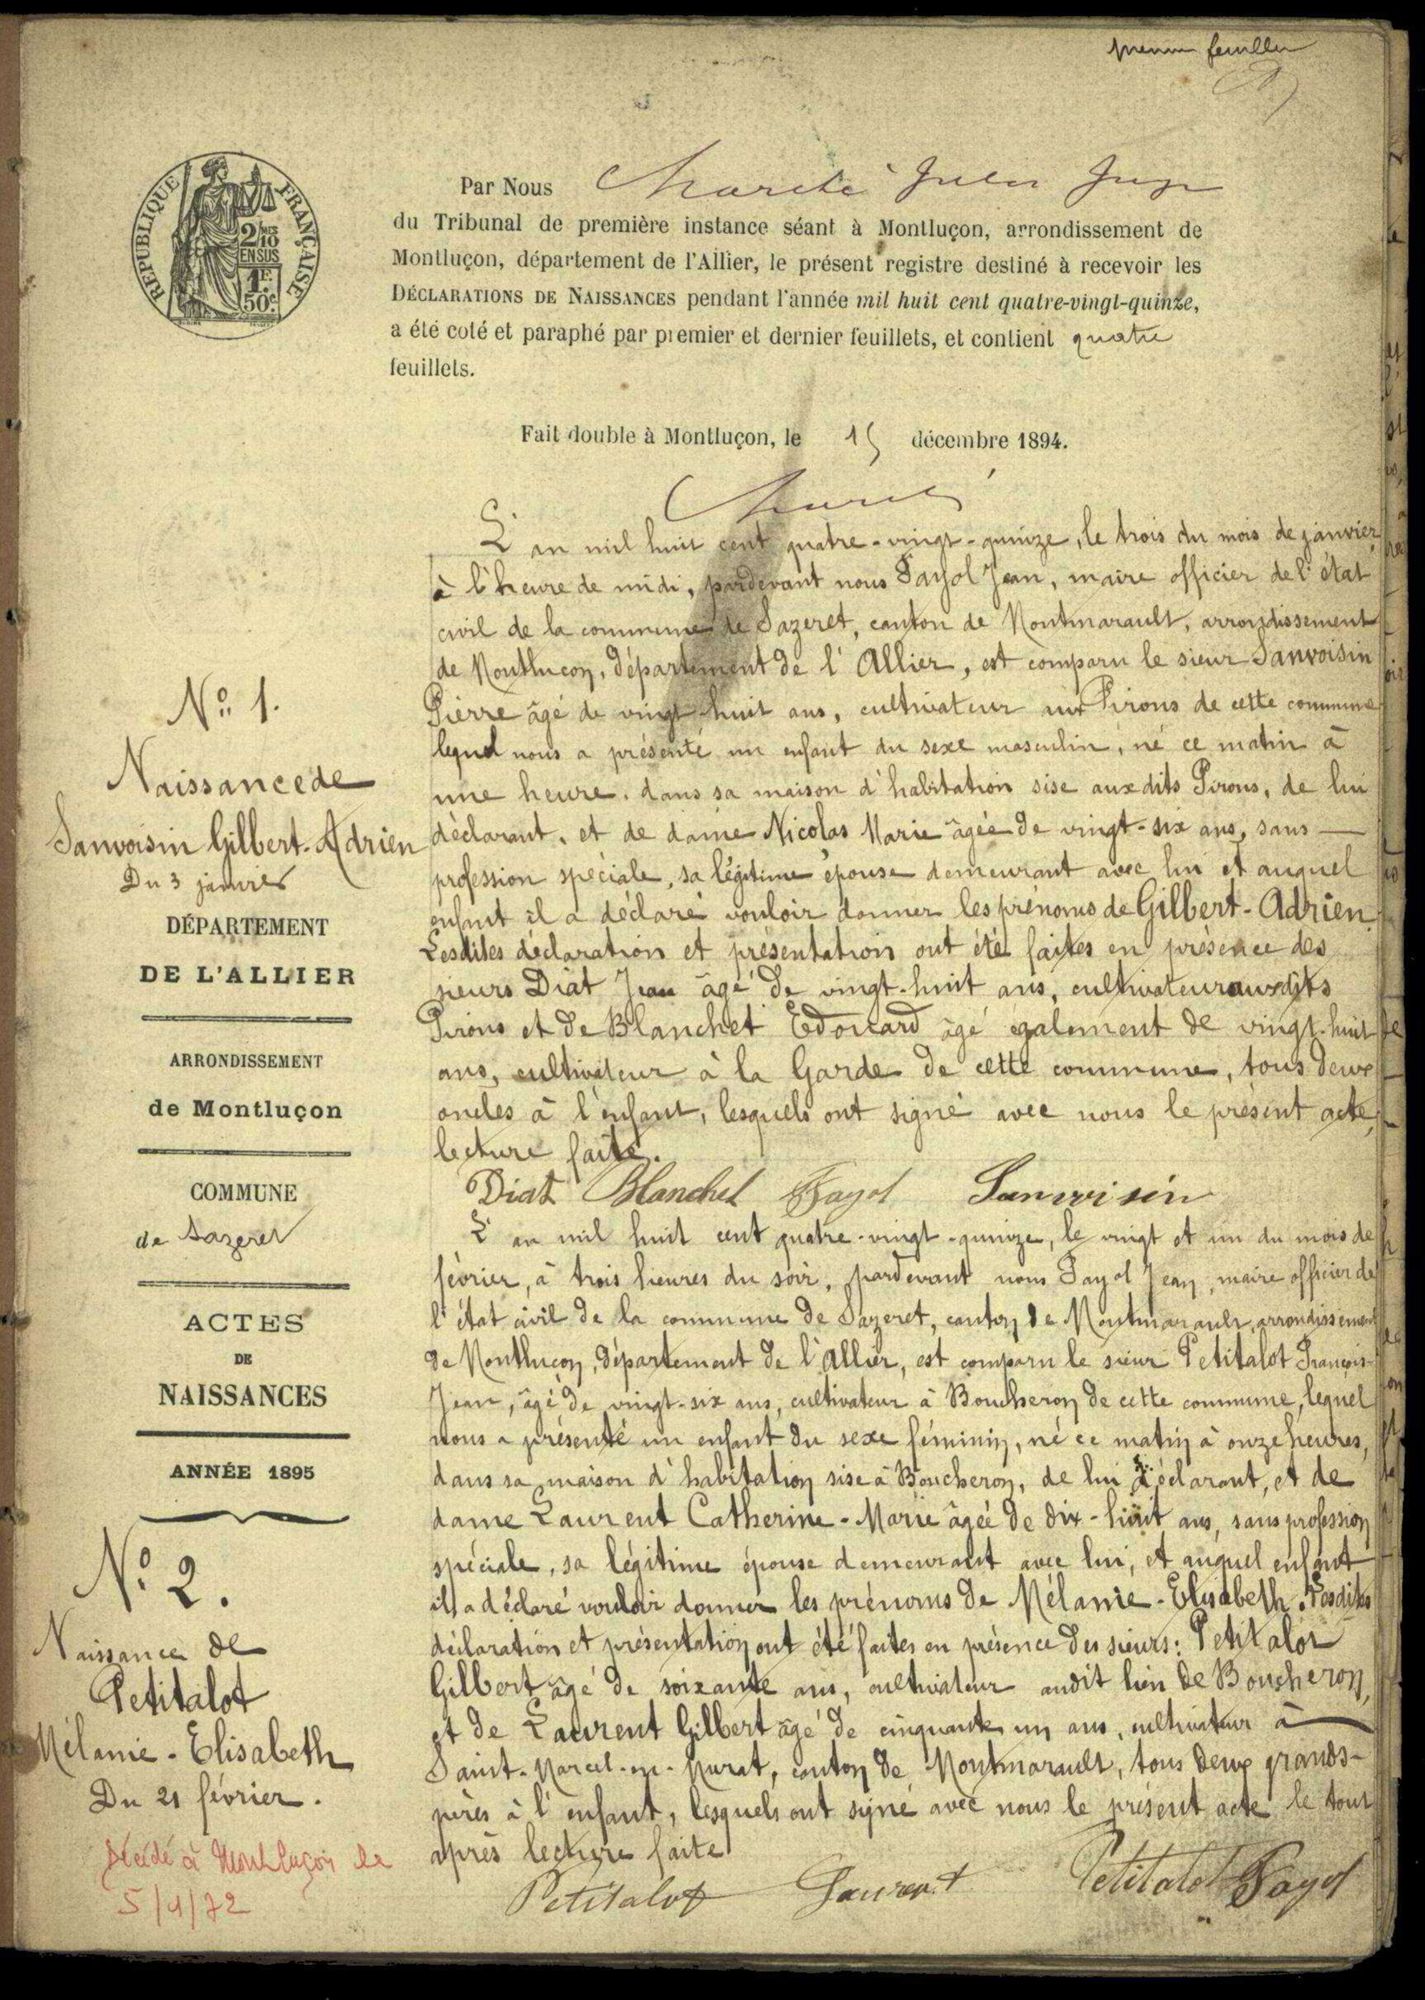 premier feuillet
RÉPUBLIQUE FRANÇAISE
2/10
EN SUS
1F.
50c.
Par Nous Jules Juge
du Tribunal de première instance séant à Montluçon, arrondissement de
Montluçon, département de l'Allier, le présent registre destiné à recevoir les
DÉCLARATIONS DE NAISSANCES pendant l'année mil huit cent quatre-vingt-quinze,
a été coté et paraphé par premier et dernier feuillets, et contient quatre
feuillets.
Fait double à Montluçon, le 15 décembre 1894.
N° 1.
Naissance de
Sanvoisin Gilbert-Adrien
Du 3 janvier
DÉPARTEMENT
DE L'ALLIER
ARRONDISSEMENT
de Montluçon
COMMUNE
de Sazeret
ACTES
DE
NAISSANCES
ANNÉE 1895
N° 2.
Naissance de
Petitalot
Mélanie-Elisabeth
Du 21 février.
Décédé à Montluçon le
5/4/72
L'an mil huit cent quatre-vingt-quinze, le trois du mois de janvier,
à l'heure de midi, pardevant nous Fayol Jean, maire officier de l'état
civil de la commune de Sazeret, canton de Montmarault, arrondissement
de Montluçon, département de l'Allier, est comparu le sieur Sanvoisin
Pierre âgé de vingt-huit ans, cultivateur aux Pirons de cette commune
lequel nous a présenté un enfant du sexe masculin, né ce matin à
une heure, dans sa maison d'habitation sise auxdits Pirons, de lui
déclarant, et de dame Nicolas Marie âgée de vingt-six ans, sans
profession spéciale, sa légitime épouse demeurant avec lui et auquel
enfant il a déclaré vouloir donner les prénoms de Gilbert-Adrien.
Lesdites déclaration et présentation ont été faites en présence des
sieurs Diat Jean âgé de vingt-huit ans, cultivateur auxdits
Pirons et de Blanchet Edouard âgé également de vingt-huit
ans, cultivateur à la Garde de cette commune, tous deux
oncles à l'enfant, lesquels ont signé avec nous le présent acte,
lecture faite.
Diat Blanchet Fayol Sanvoisin
L'an mil huit cent quatre-vingt-quinze, le vingt et un du mois de
février, à trois heures du soir, pardevant nous Fayol Jean, maire officier de
l'état civil de la commune de Sazeret, canton de Montmarault, arrondissement
de Montluçon, département de l'Allier, est comparu le sieur Petitalot François-
Jean, âgé de vingt-six ans, cultivateur à Boucheron de cette commune, lequel
nous a présenté un enfant du sexe féminin, né ce matin à onze heures,
dans sa maison d'habitation sise à Boucheron, de lui déclarant, et de
dame Laurent Catherine-Marie âgée de dix-huit ans, sans profession
spéciale, sa légitime épouse demeurant avec lui, et auquel enfant
il a déclaré vouloir donner les prénoms de Mélanie-Elisabeth. Lesdites
déclaration et présentation ont été faites en présence des sieurs: Petitalot
Gilbert âgé de soixante ans, cultivateur audit lieu de Boucheron,
et de Laurent Gilbert âgé de cinquante un ans, cultivateur à
Saint-Marcel-en-Murat, canton de Montmarault, tous deux grands-
pères à l'enfant, lesquels ont signé avec nous le présent acte le tout
après lecture faite
Petitalot Laurent Petitalot Fayol